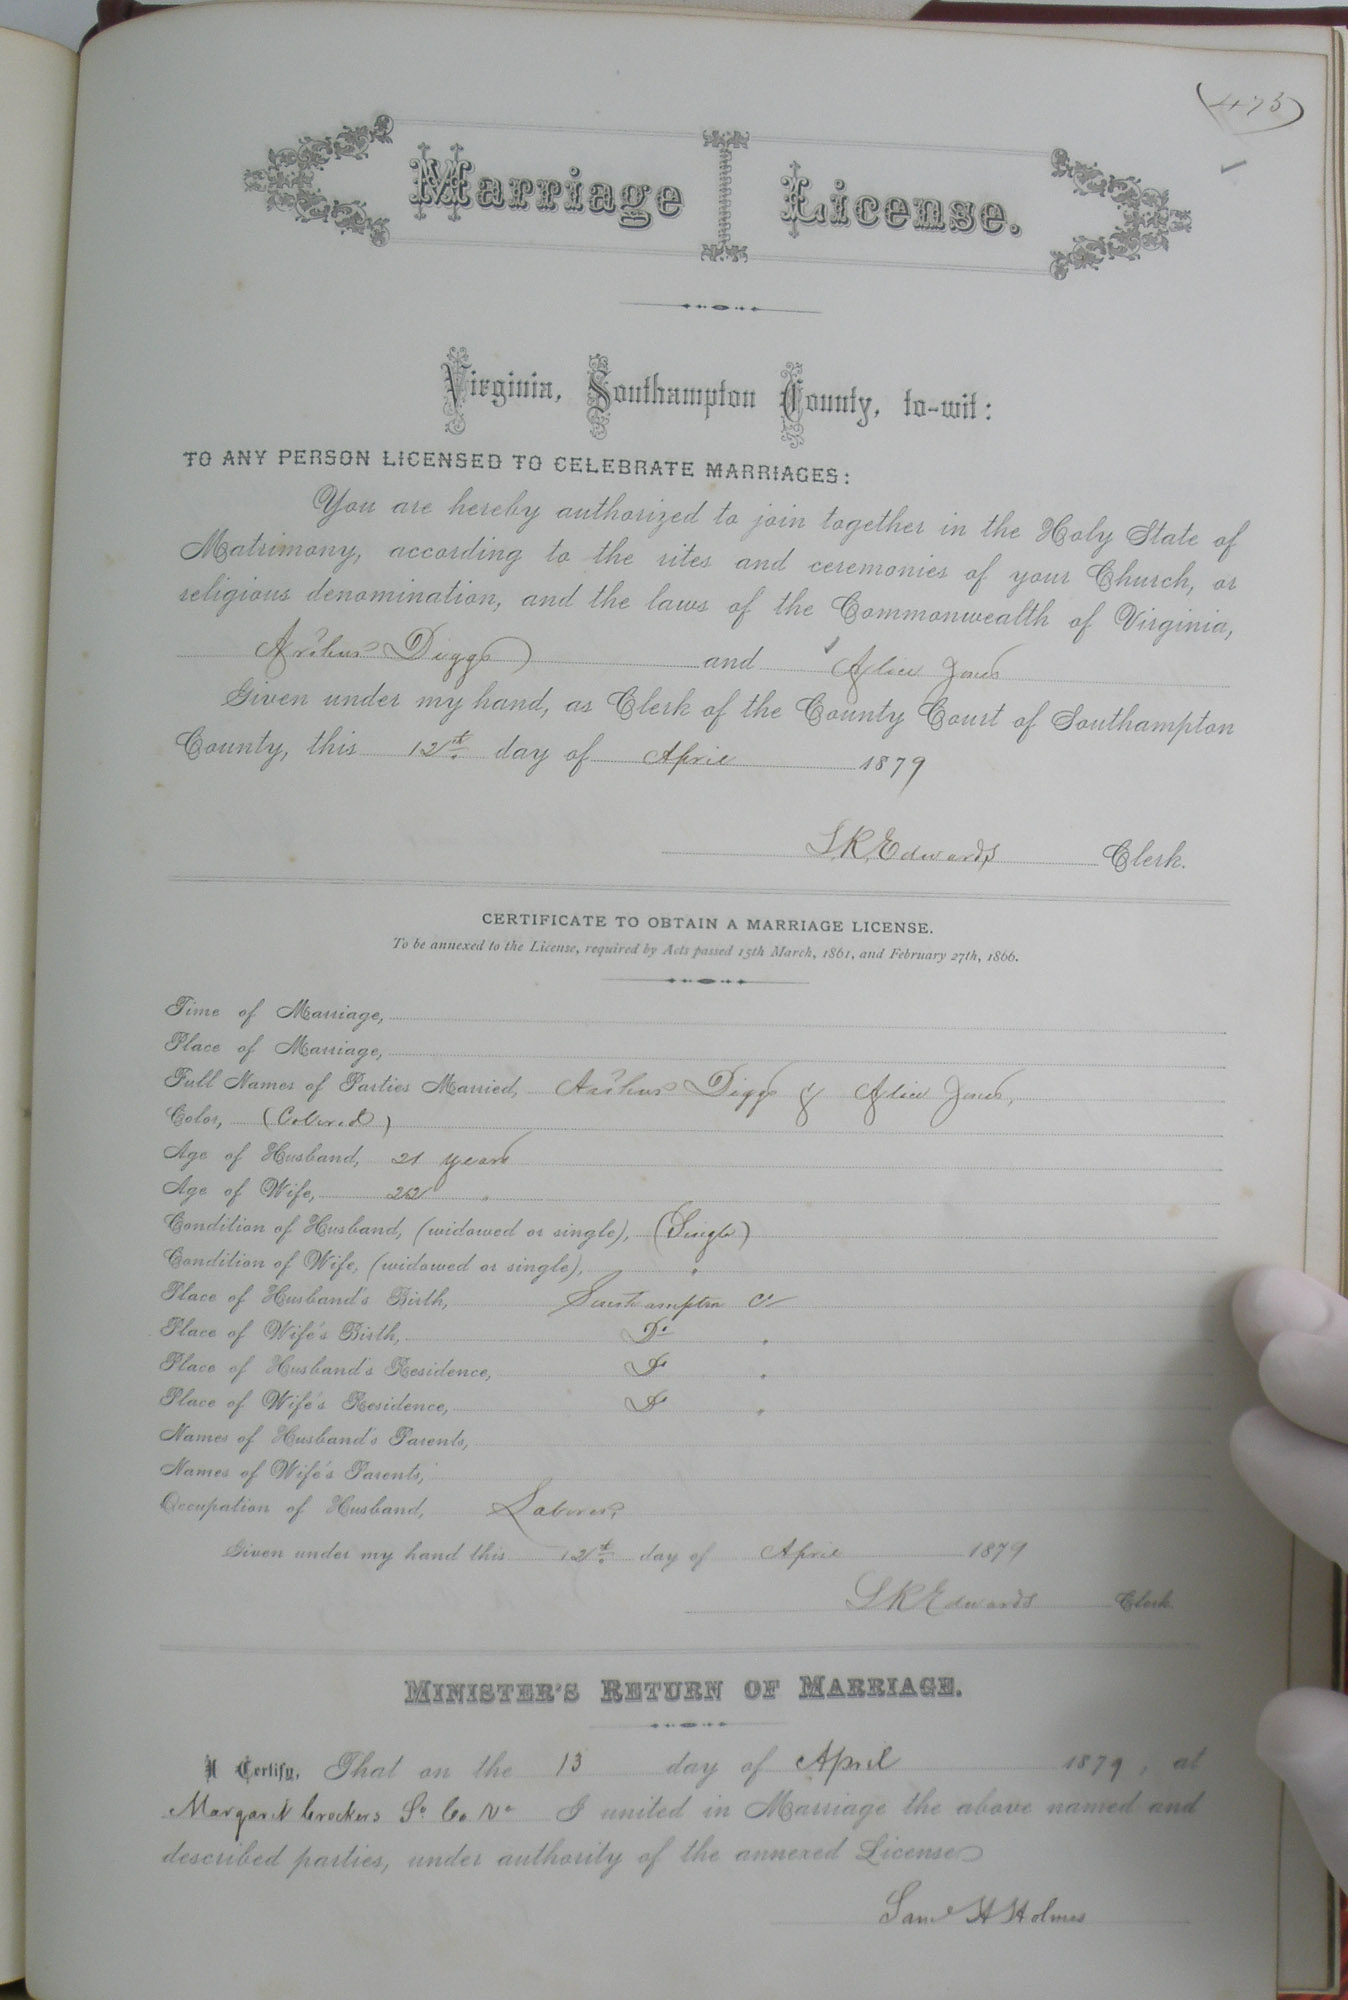 (473)
Marriage License.
Virginia, Southampton County, to-wit:
TO ANY PERSON LICENSED TO CELEBRATE MARRIAGES:
You are hereby authorized to join together in the Holy State of
Matrimony, according to the rites and ceremonies of your Church, or
religious denomination, and the laws of the Commonwealth of Virginia,
Arthur Diggs and Alice Jones
Given under my hand, as Clerk of the County Court of Southampton
County, this 12th day of April 1879
L R Edwards Clerk.
CERTIFICATE TO OBTAIN A MARRIAGE LICENSE.
To be annexed to the License, required by Acts passed 15th March, 1861, and February 27th, 1866.
Time of Marriage,
Place of Marriage,
Full Names of Parties Married, Arthur Diggs & Alice Jones,
Color, (Colored)
Age of Husband, 21 years
Age of Wife, 22 "
Condition of Husband, (widowed or single), (Single)
Condition of Wife, (widowed or single), "
Place of Husband's Birth, Southampton Co
Place of Wife's Birth, Do "
Place of Husband's Residence, Do "
Place of Wife's Residence, Do "
Names of Husband's Parents,
Names of Wife's Parents,
Occupation of Husband, Laborer,
Given under my hand this 12th day of April 1879
L R Edwards Clerk
MINISTER'S RETURN OF MARRIAGE.
I Certify, That on the 13 day of April 1879, at
Margaret Crockers So. Co. Va I united in Marriage the above named and
described parties, under authority of the annexed License
Saml H Holmes